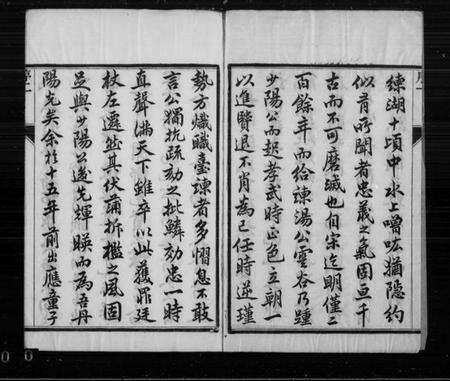 練湖十頃中水上噌吰猶隱約
似有所聞者忠義之氣固亘千
古而不可磨滅也自宋迄明僅二
百餘年而給諫湯公雲谷乃踵
少陽公而起孝武時正色立朝一
以進賢退不肖為己任時逆瑾
勢方熾職臺諫者多惴息不敢
言公獨抗疏劾之批鱗効忠一時
直聲滿天下雖卒以此獲罪廷
杖左遷然其伏蒲折檻之風固
足與少陽公後先輝暎而為吾丹
陽光矣余於十五年前出應童子